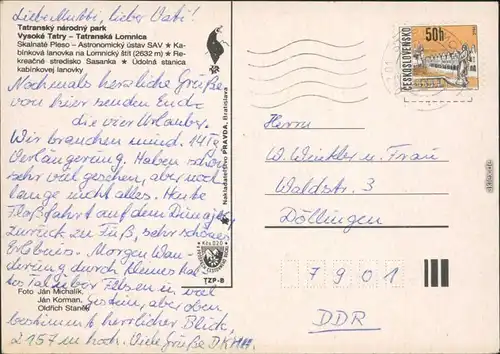 Liebe Mutti, lieber Vati!
Tatranský národný park
Vysoké Tatry - Tatranská Lomnica
Skalnaté Pleso - Astronomický ústav SAV ★ Ka-
binková lanovka na Lomnický štít (2632 m) ★ Re-
kreačné stredisko Sasanka ★ Údolná stanica
kabínkovej lanovky
Nochmals herzliche Grüße
von hier senden Euch
die vier Urlauber.
Wir brauchen mind. 14 Tg
Verlängerung. Haben schon
sehr viel gesehen, aber noch
lange nicht alles. Heute
Floßfahrt auf dem Dunajec,
zurück zu Fuß, sehr schönes
Erlebnis. Morgen Wan-
derung durch kleines Kal-
tes Tal über Felsen und viel
Gestein, aber oben
bestimmt herrlicher Blick,
2157 m hoch. Viele Grüße D K H H.
Foto Ján Michalík,
Ján Korman,
Oldřich Staněk
Nakladateľstvo PRAVDA, Bratislava
Kčs 0,20
TZP-8
ČESKOSLOVENSKO
50h
Herrn
W. Winkler u. Frau
Waldstr. 3
Döllingen
7901
DDR